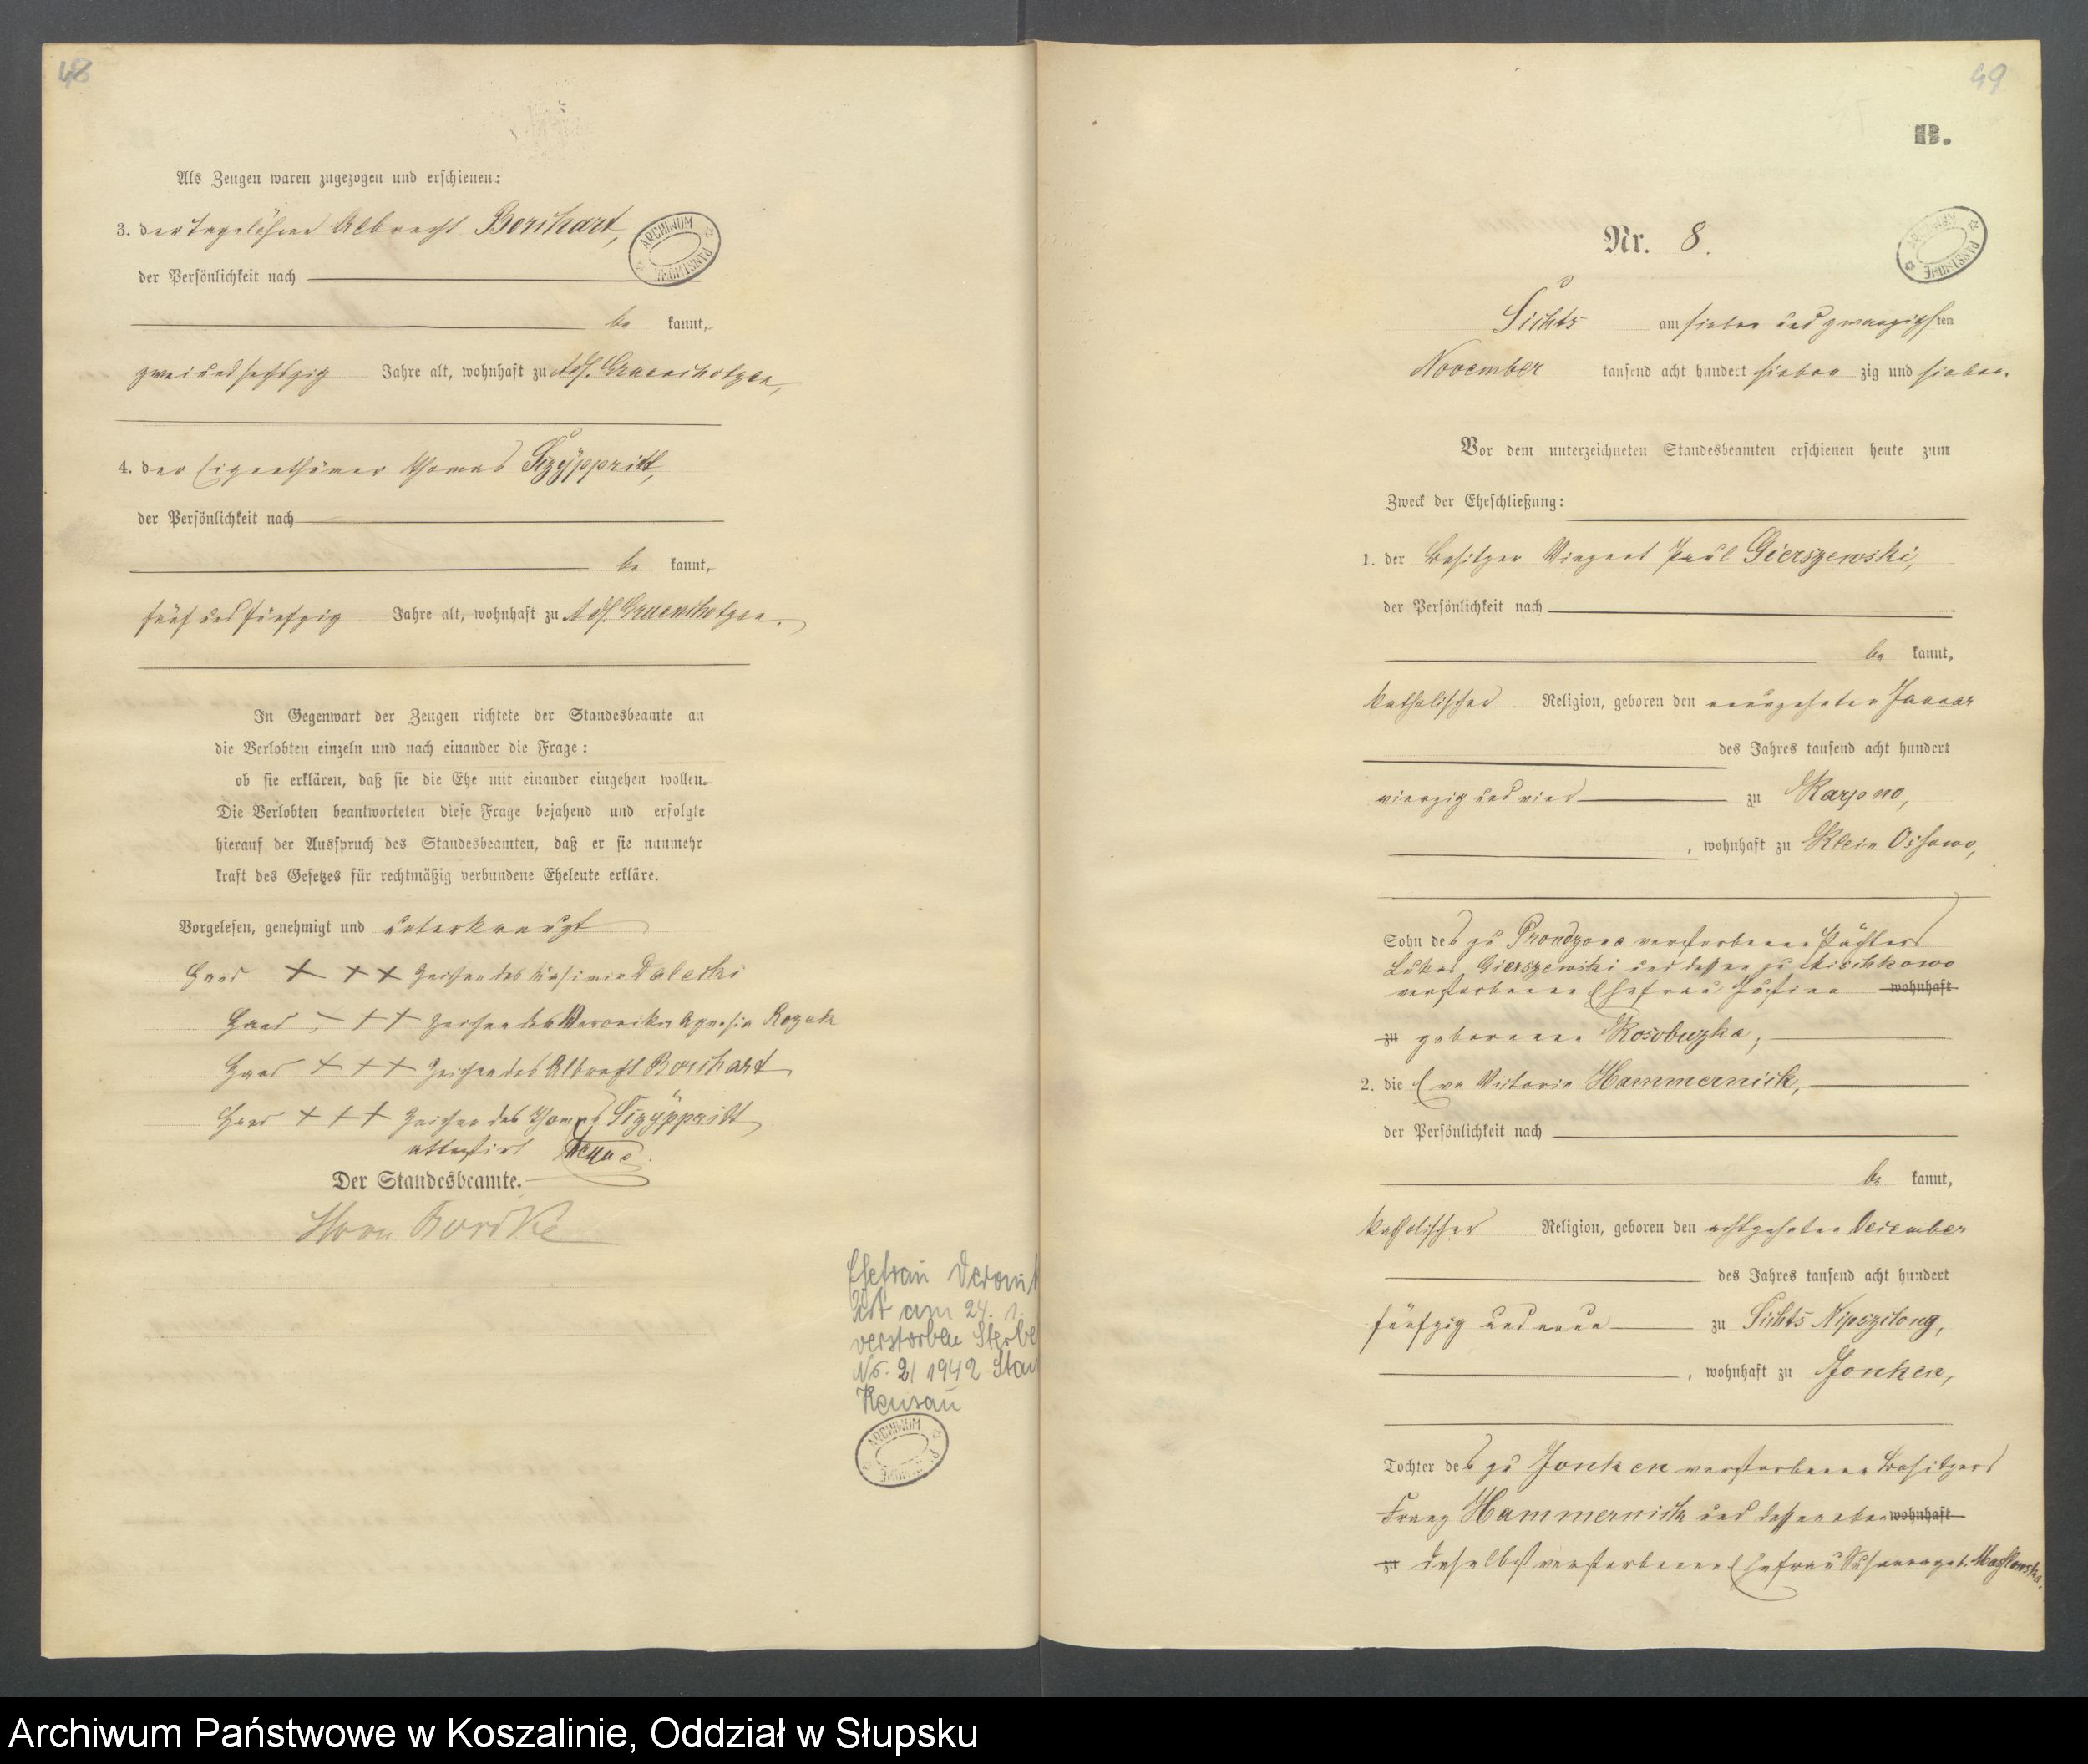 48
Als Zeugen waren zugezogen und erschienen:
3. der Tagelöhner Albrecht Borchart,
der Persönlichkeit nach
be kannt,
zwei und sechszig Jahre alt, wohnhaft zu Adl.
4. der Eigenthümer Thomas
der Persönlichkeit nach
be kannt,
fünf und fünfzig Jahre alt, wohnhaft zu Adl.
In Gegenwart der Zeugen richtete der Standesbeamte an
die Verlobten einzeln und nach einander die Frage:
ob sie erklären, daß sie die Ehe mit einander eingehen wollen.
Die Verlobten beantworteten diese Frage bejahend und erfolgte
hierauf der Ausspruch des Standesbeamten, daß er sie nunmehr
kraft des Gesetzes für rechtmäßig verbundene Eheleute erkläre.
Vorgelesen, genehmigt und unterkreuzt
Hand + + + Zeichen des Kasimir Dalecki
Hand + + + Zeichen der Veronika Agnesia Rozek
Hand + + + Zeichen des Albrecht Borchart
Hand + + + Zeichen des Thomas
attestirt
Der Standesbeamte.
Ehefrau
ist am 24. 1.
verstorben Sterbe
No. 2/1942 Stan
ARCHIWUM PAŃSTWOWE
49
B.
Nr. 8.
ARCHIWUM PAŃSTWOWE
Lichts am sieben und zwanzigsten
November tausend acht hundert sieben zig und sieben.
Vor dem unterzeichneten Standesbeamten erschienen heute zum
Zweck der Eheschließung:
1. der Besitzer Vinzent Paul Gierszewski,
der Persönlichkeit nach
be kannt,
katholischer Religion, geboren den neunzehnten Januar
des Jahres tausend acht hundert
vierzig und vier zu Karpno,
, wohnhaft zu Klein Ossowo,
Sohn des zu Prondzona verstorbenen Pächters
Lukas Gierszewski und dessen zu
verstorbenen Ehefrau Justine wohnhaft
zu geborenen Kosobuzka;
2. die Eva Victoria Hammernick,
der Persönlichkeit nach
be kannt,
katholischer Religion, geboren den achtzehnten December
des Jahres tausend acht hundert
fünfzig und neun zu Lichts
, wohnhaft zu Jonken,
Tochter des zu Jonken verstorbenen Besitzers
Franz Hammernick und dessen eben wohnhaft
zu daselbst verstorbenen Ehefrau Susanna geb.
Archiwum Państwowe w Koszalinie, Oddział w Słupsku